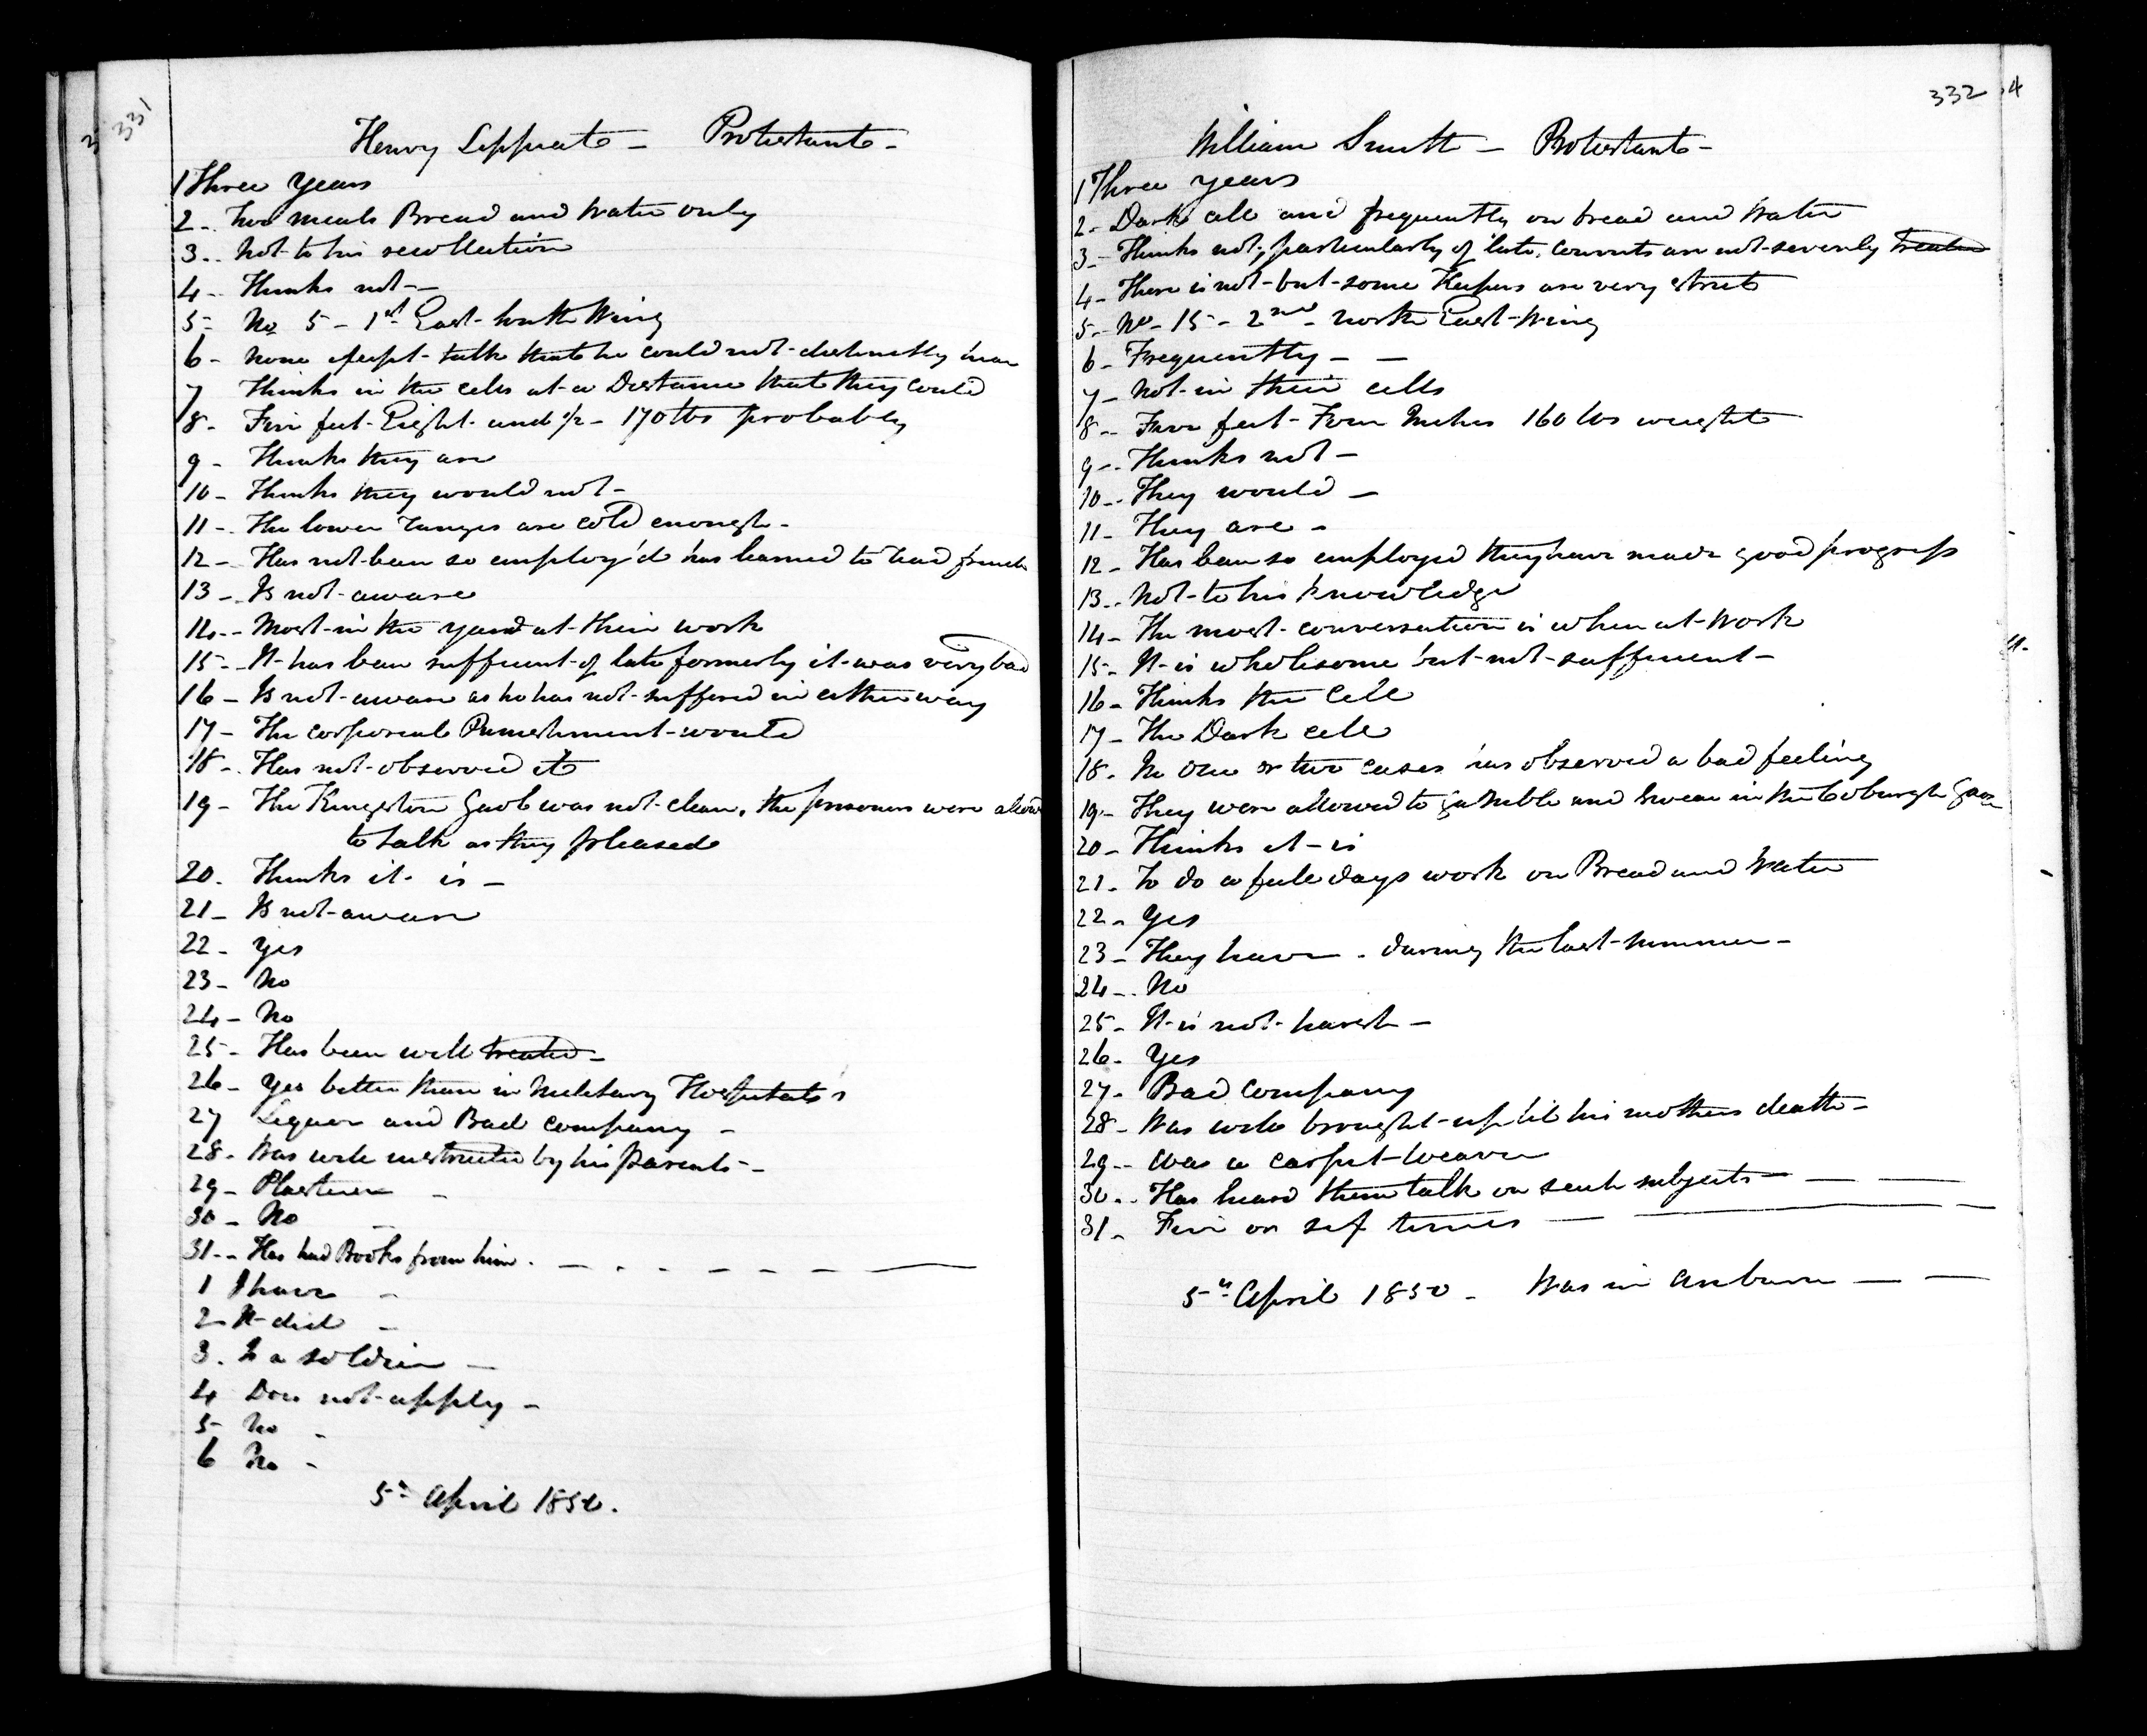 331
Henry Lippiatt - Protestant -
1 Three years
2 - Two meals Bread and Water only
3 - Not to his recollection
4 - Thinks not -
5 - No 5 - 1st East South Wing
6 - None except talk that he could not distinctly hear
7 Thinks in the cells at a Distance that they could
8 - Five feet Eight and 1/2 - 170 lbs probably
9 - Thinks they are
10 - Thinks they would not -
11 - The lower ranges are cold enough -
12 - Has not been so employ'd has learned to read french
13 - Is not aware
14 - Most in the yard at their work
15 - It has been sufficient of late formerly it was very bad
16 - Is not aware as he has not suffered in either way
17 - The corporeal Punishment would
18 - Has not observed it
19 - The Kingston Gaol was not clean, the prisoners were allow
to talk as they pleased
20. Thinks it is -
21 - Is not aware
22 - yes
23 - No
24 - No
25 - Has been well treated -
26 - yes better than in Military Hospitals
27 Liquor and Bad company -
28 - Was well instructed by his parents -
29 - Plasterer -
30 - No
31 - Has had Books from him. -
1 I have -
2 It did -
3. Is a soldier -
4 Does not apply -
5 No -
6 No -
5th April 1850.
332
William Smith - Protestant -
1 Three years
2 - Dark cell and frequently on bread and Water
3 - Thinks not, particularly of late, convicts are not severely treated
4 - There is not but some Keepers are very strict
5 - No - 15 - 2nd - North East Wing
6 - Frequently - -
7 - Not in their cells
8 - Five feet Four Inches 160 lbs weight
9 - Thinks not -
10 - They would -
11 - They are -
12 - Has been so employed they have made good progress
13 - Not to his knowledge
14 - The most conversation is when at work
15 - It is wholesome but not sufficient -
16 - Thinks the Cell
17 - The Dark cell
18 - In one or two cases has observed a bad feeling
19 - They were allowed to gamble and swear in the Cobourgh Gaol
20 - Thinks it is
21 - To do a full days work on Bread and Water
22 - yes
23 - They have - during the last summer -
24 - No
25 - It is not harsh -
26 - yes
27 - Bad company
28 - Was well brought up 'til his mothers death -
29 - was a carpet weaver
30 - Has heard them talk on such subjects -
31 - Five or six times -
5th April 1850 - Was in Auburn -